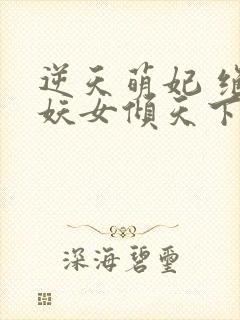 逆天萌妃
妖女倾天下
深海碧玺